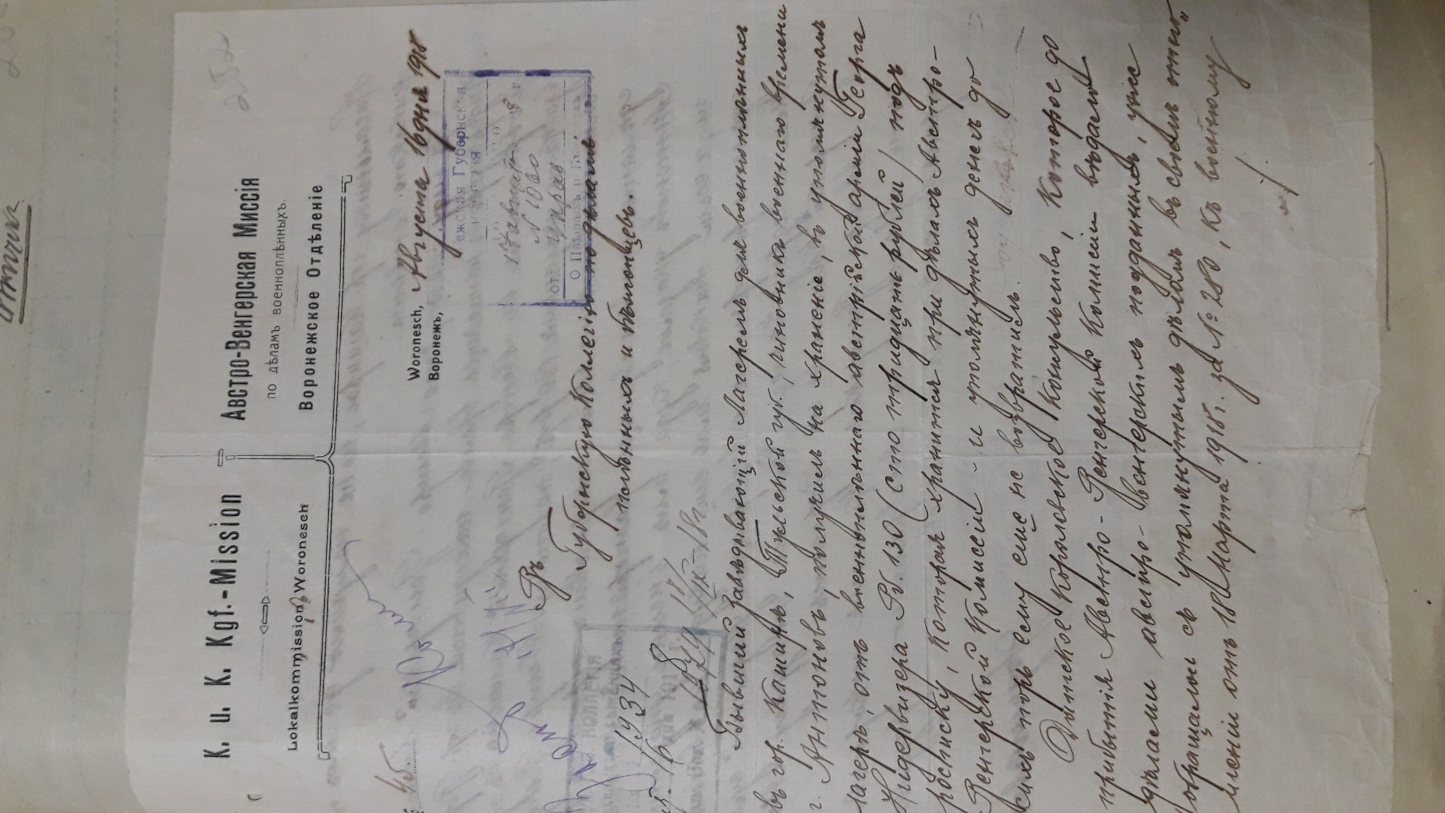 252
К. u. К. Kgf.-Mission
Lokalkommission Woronesch
Австро-Венгерская Миссія
по дѣламъ военноплѣнныхъ.
Воронежское Отдѣленіе
Woronesch,
Воронежъ,
Августа 16 дня 1918
ежская Губернска
17 августа
№ 1080
отъ
Въ
Губернскую Коллегію по дѣламъ
плѣнныхъ и бѣженцевъ.
1934
Бывшій завѣдывающій Лагеремъ для военноплѣнныхъ
въ гор. Кашира, Тульской губ., чиновникъ военнаго времени
г. Антоновъ, получилъ на храненіе, въ упомянутомъ
лагерѣ, отъ военноплѣннаго австрійской арміи Георга
Нидервизера Рб. 130 (сто тридцать рублей) подъ
росписку, которая хранится при дѣлахъ Австро-
Венгерской Комиссіи - и упомянутыхъ денегъ до
сихъ поръ ему еще не возвратилъ.
Датское Королевское Консульство, которое до
прибытія Австро-Венгерской Комисіи вѣдало
дѣлами австро-венгерскихъ подданныхъ, уже
обращалось съ упомянутымъ дѣломъ въ своемъ отно-
шеніи отъ 18 Марта 1918 г. за № 280, къ военному